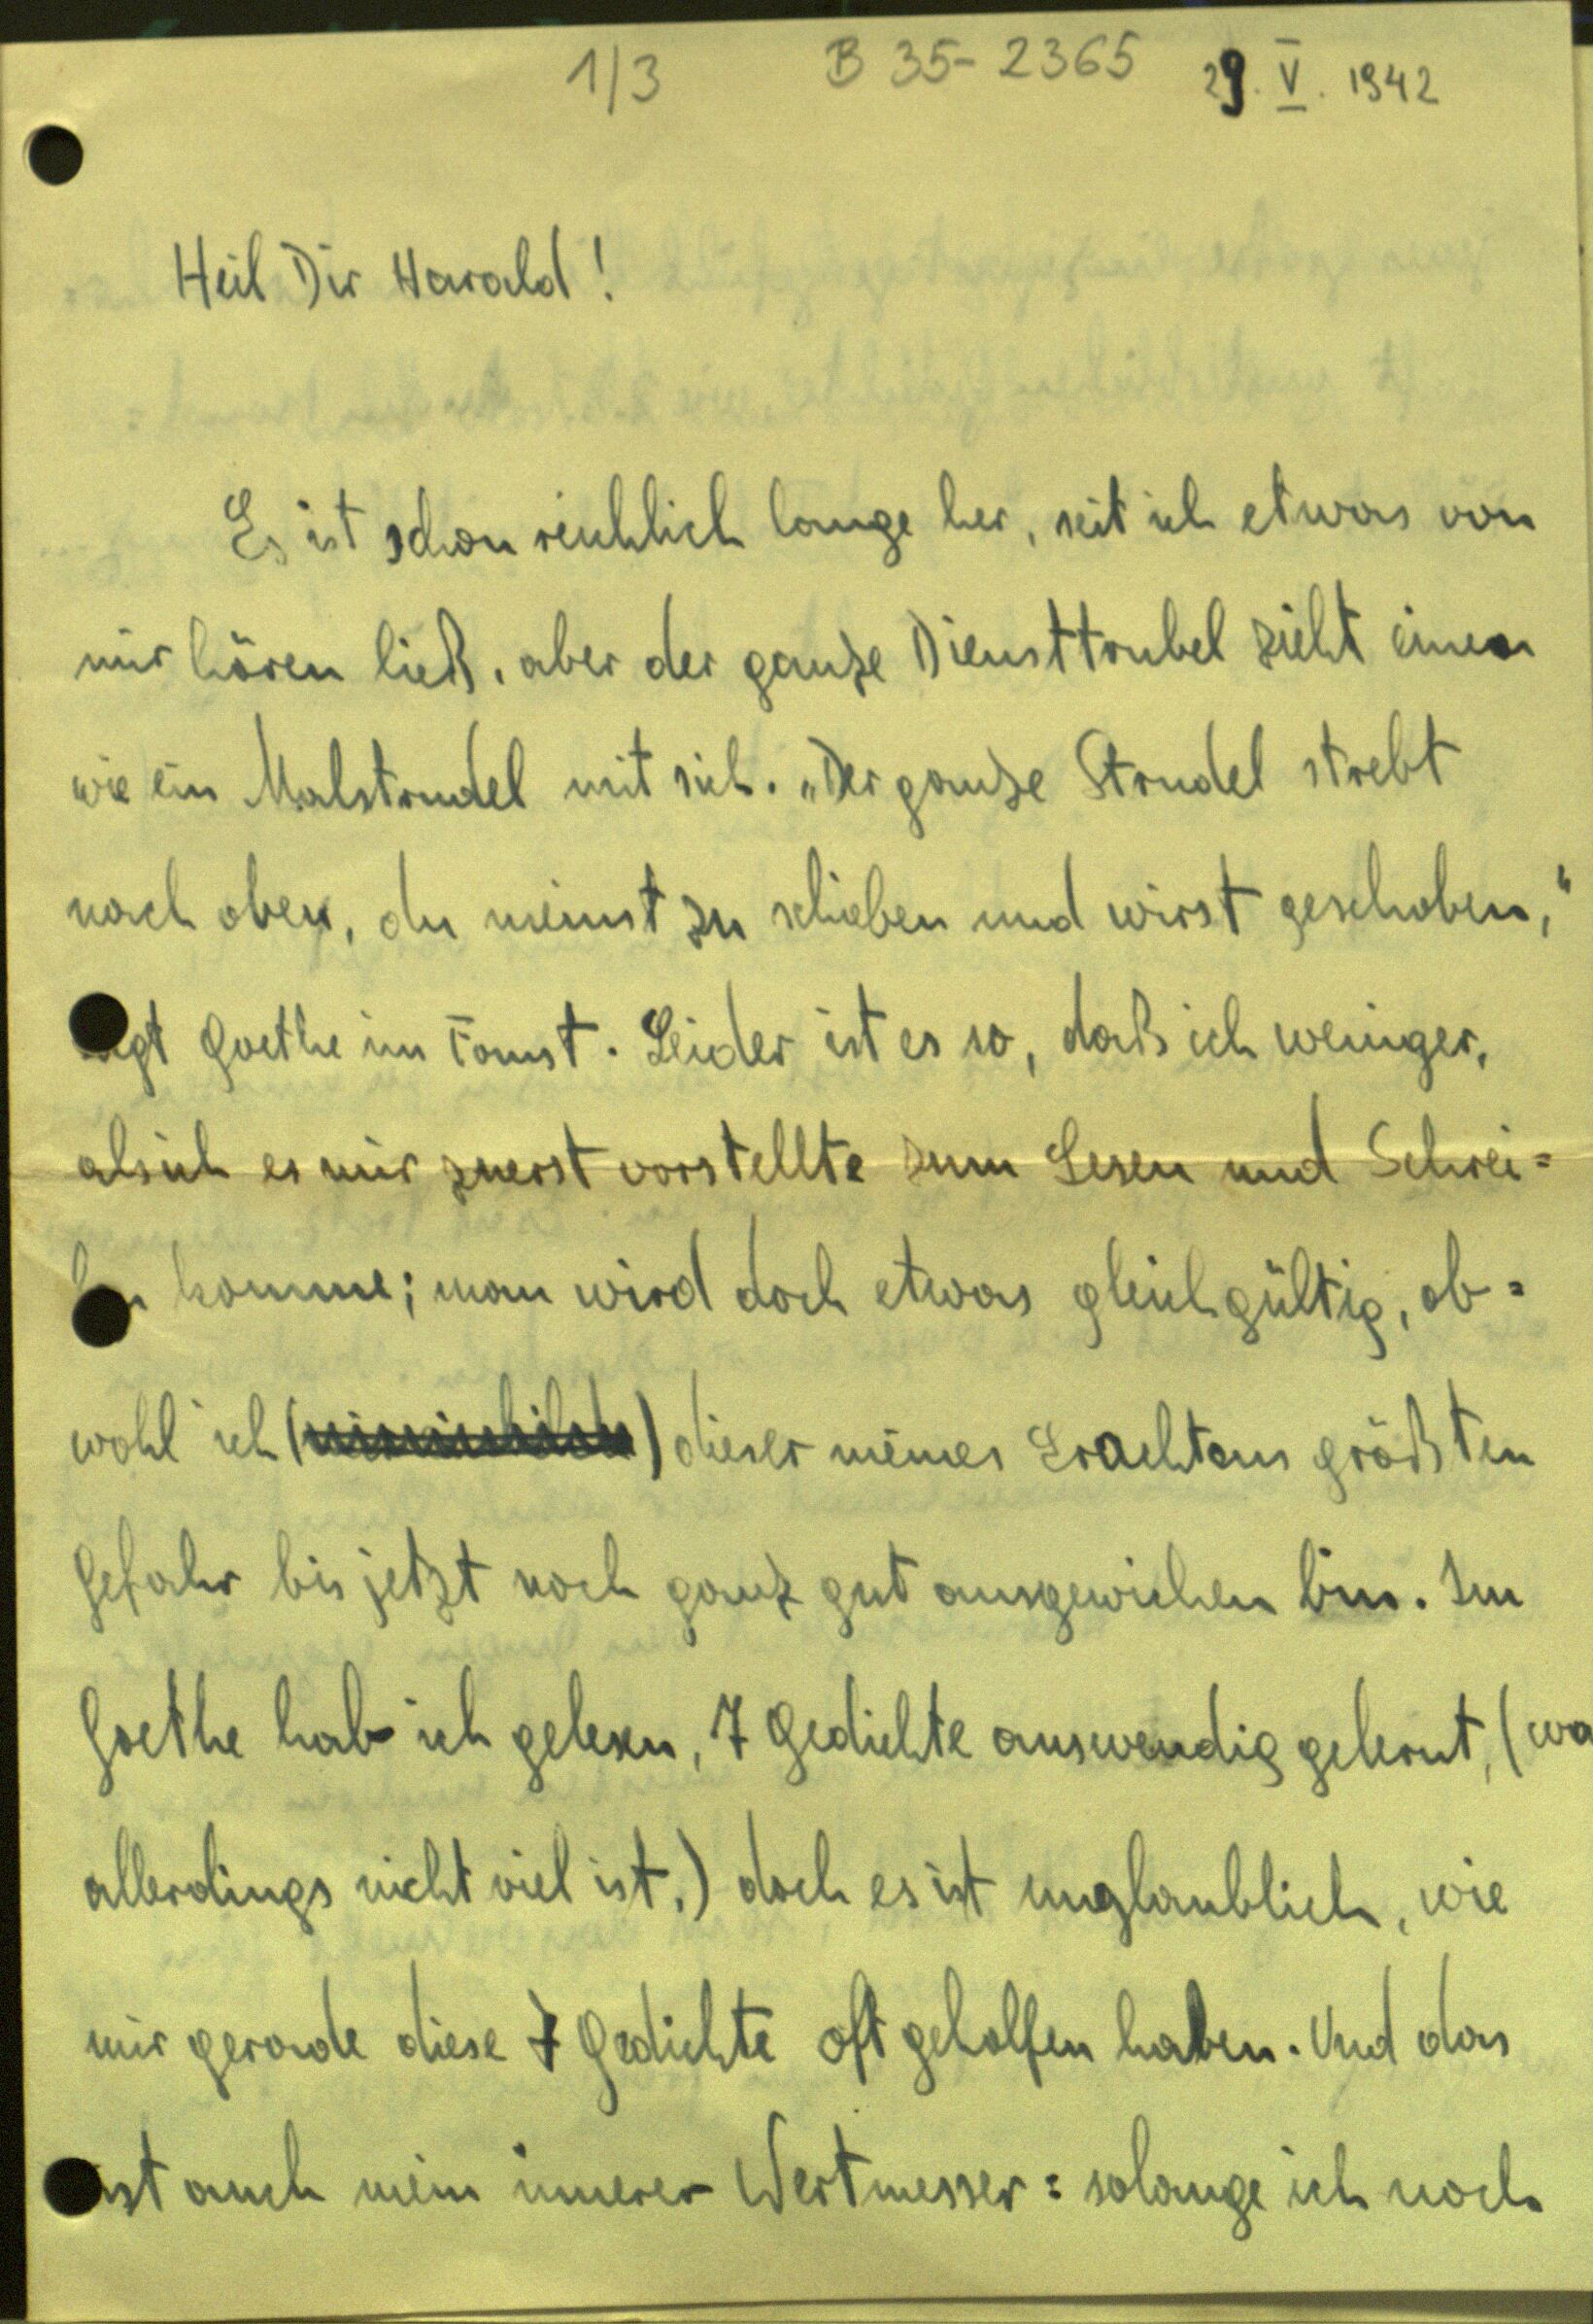 1/3 B 35-2365 29. V. 1942
Heil Dir Harald!
Es ist schon reichlich lange her, seit ich etwas von
mir hören ließ, aber der ganze Diensttrubel zieht einen
wie ein Malstrudel mit sich. „Der ganze Strudel strebt
nach oben, du meinst zu schieben und wirst geschoben,"
agt Goethe im Faust. Leider ist es so, daß ich weniger,
als ich es mir zuerst vorstellte zum Lesen und Schrei=
ben komme; man wird doch etwas gleichgültig, ob=
wohl ich ( ) dieser meines Erachtens größten
Gefahr bis jetzt noch ganz gut ausgewichen bin. Im
Goethe hab ich gelesen, 7 Gedichte auswendig gelernt, (wa
allerdings nicht viel ist,) doch es ist unglaublich, wie
mir gerade diese 7 Gedichte oft geholfen haben. Und das
ist auch mein innerer Wertmesser: solange ich noch